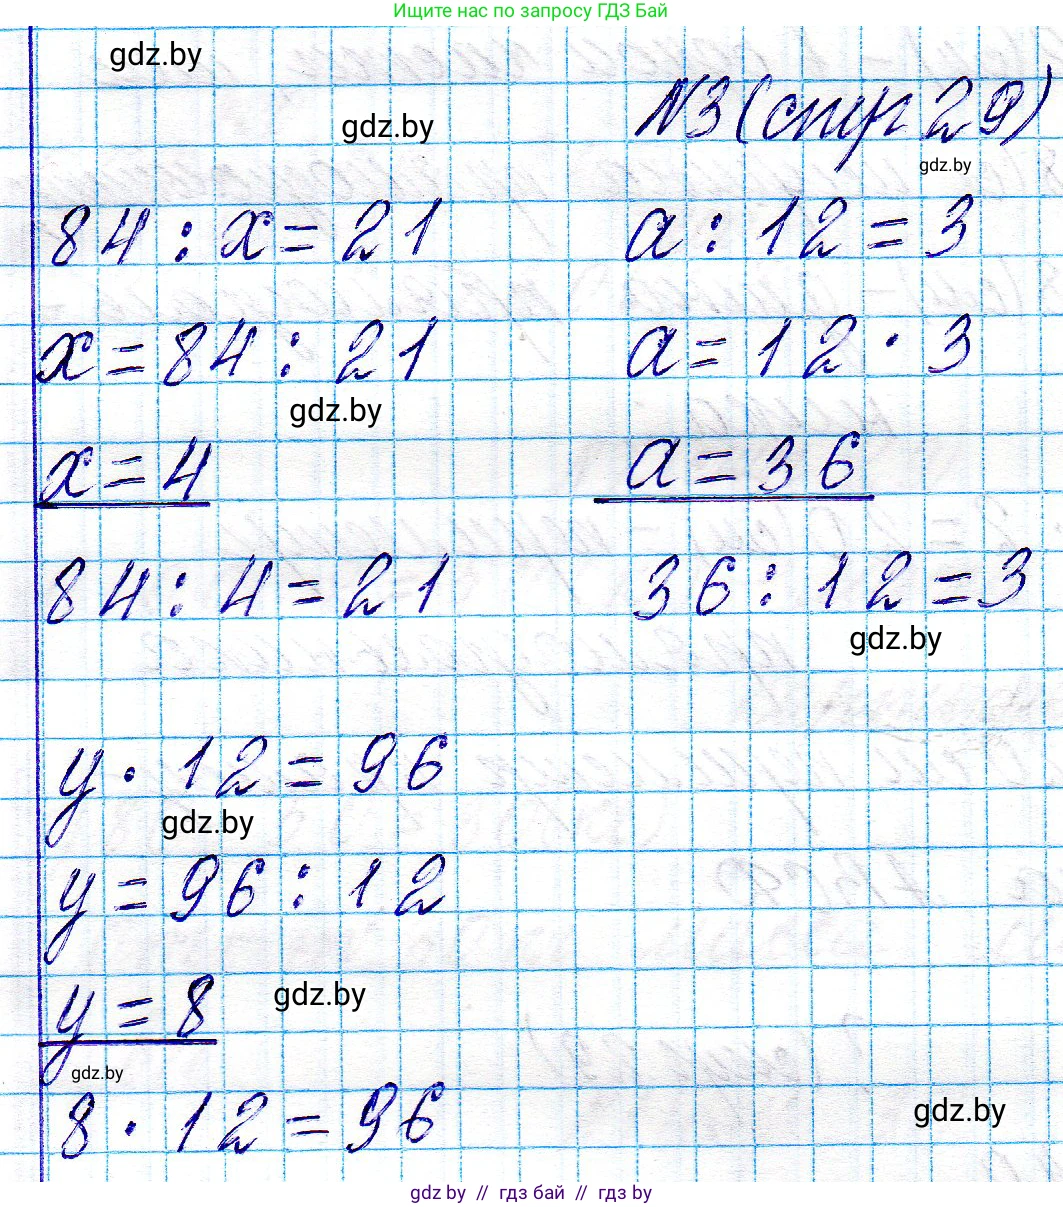 Ищите нас по запросу ГДЗ Бай
gdz.by
№3 (стр 29)
gdz.by
gdz.by
84 : x = 21
a : 12 = 3
x = 84 : 21
a = 12 · 3
gdz.by
x = 4
a = 36
84 : 4 = 21
36 : 12 = 3
gdz.by
y · 12 = 96
gdz.by
y = 96 : 12
y = 8
gdz.by
gdz.by
8 · 12 = 96
gdz.by
gdz by // гдз бай // гдз by